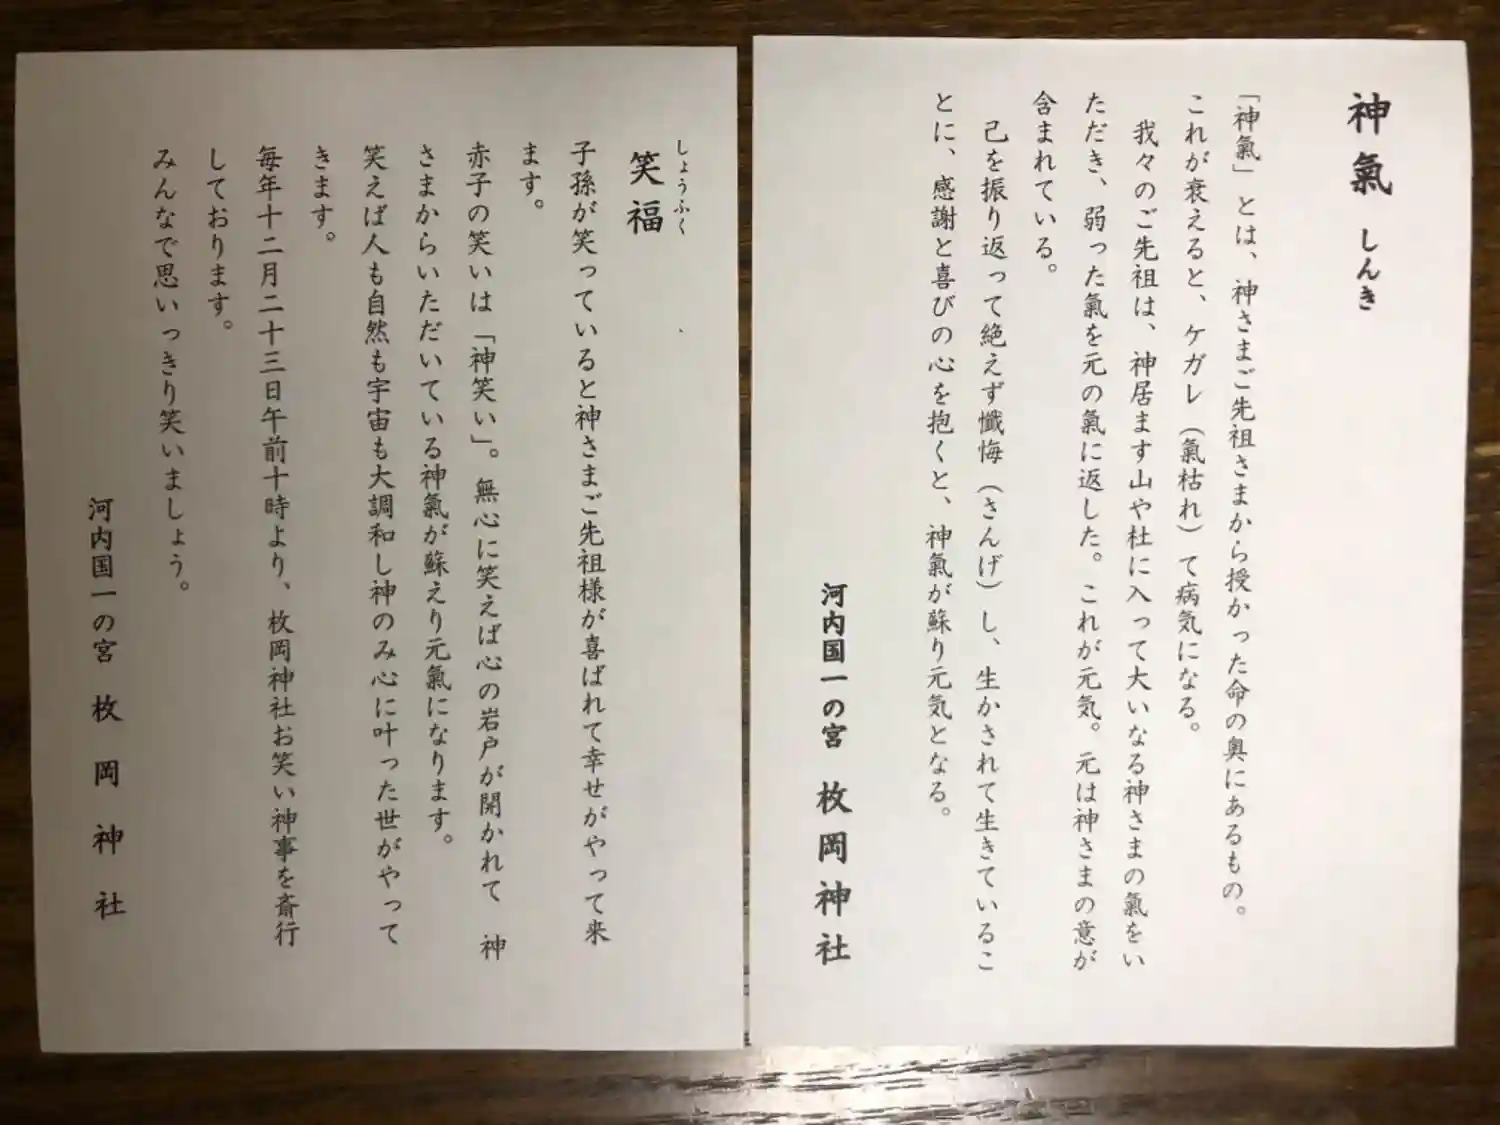 神氣 しんき
「神氣」とは、神さまご先祖さまから授かった命の奥にあるもの。
これが衰えると、ケガレ（氣枯れ）て病気になる。
我々のご先祖は、神居ます山や杜に入って大いなる神さまの氣をい
ただき、弱った氣を元の氣に返した。これが元気。元は神さまの意が
含まれている。
己を振り返って絶えず懺悔（さんげ）し、生かされて生きているこ
とに、感謝と喜びの心を抱くと、神氣が蘇り元気となる。
河内国一の宮 枚岡神社
しょうふく
笑福
子孫が笑っていると神さまご先祖様が喜ばれて幸せがやって来
ます。
赤子の笑いは「神笑い」。無心に笑えば心の岩戸が開かれて 神
さまからいただいている神氣が蘇えり元氣になります。
笑えば人も自然も宇宙も大調和し神のみ心に叶った世がやって
きます。
毎年十二月二十三日午前十時より、枚岡神社お笑い神事を斎行
しております。
みんなで思いっきり笑いましょう。
河内国一の宮 枚岡神社